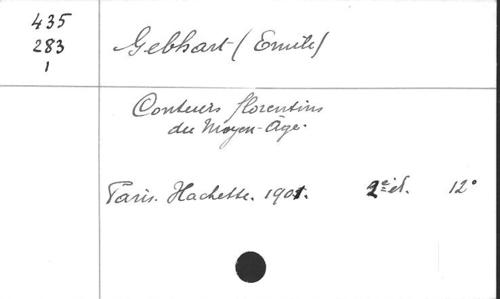 435
283
1
Gebhart (Emile)
Conteurs florentins
du Moyen-Âge.
Paris. Hachette. 1901. 2e éd. 12°